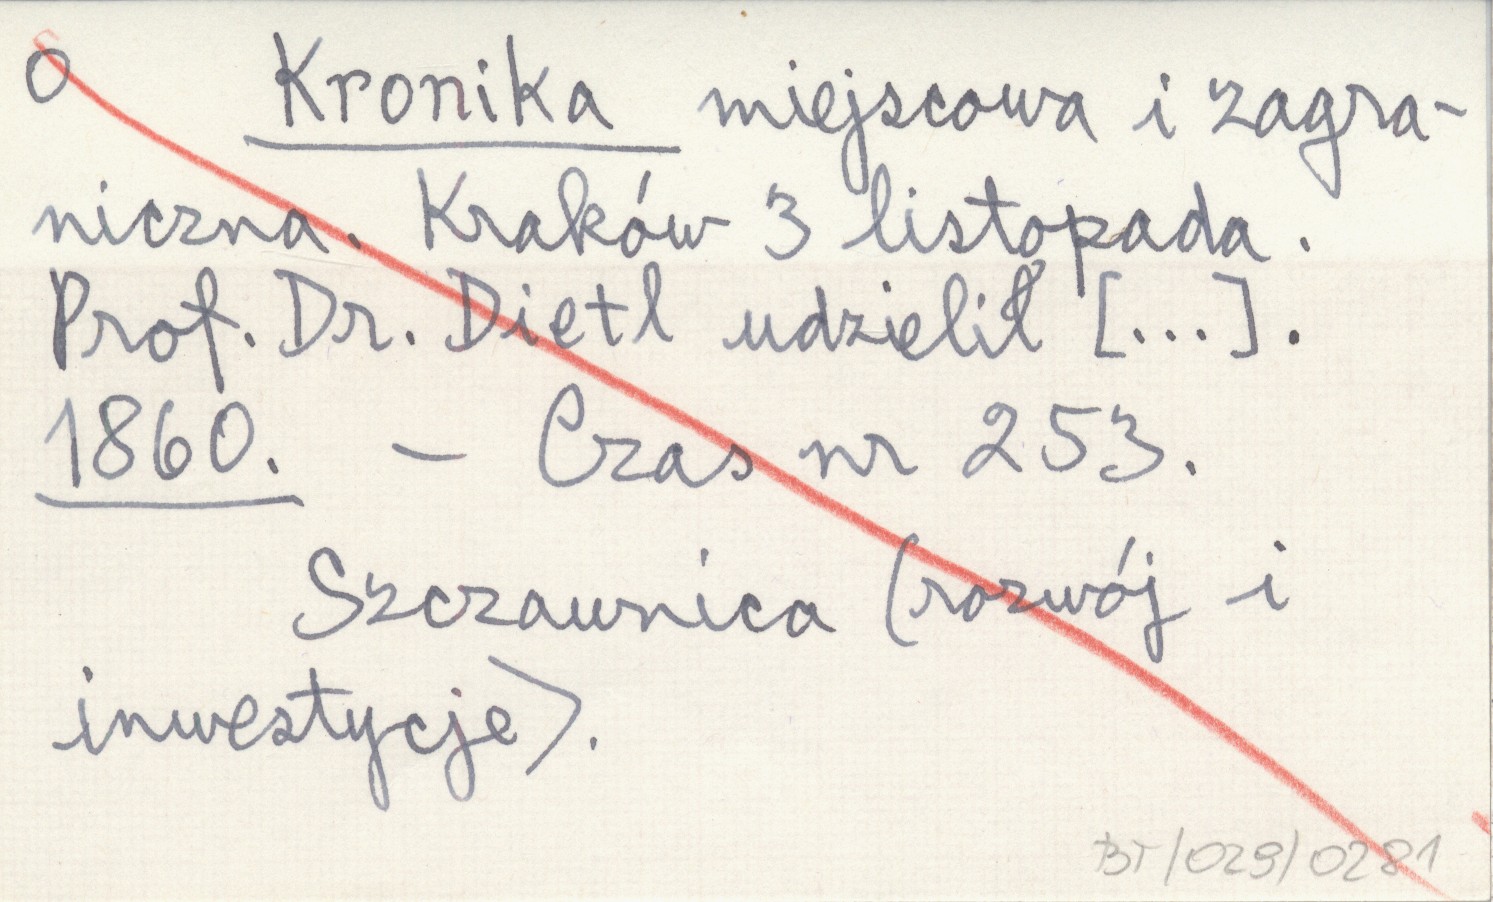 O Kronika miejscowa i zagra-
niczna. Kraków 3 listopada.
Prof. Dr. Dietl udzielił [...].
1860. - Czas nr 253.
Szczawnica (rozwój i
inwestycje).
BT/029/0281